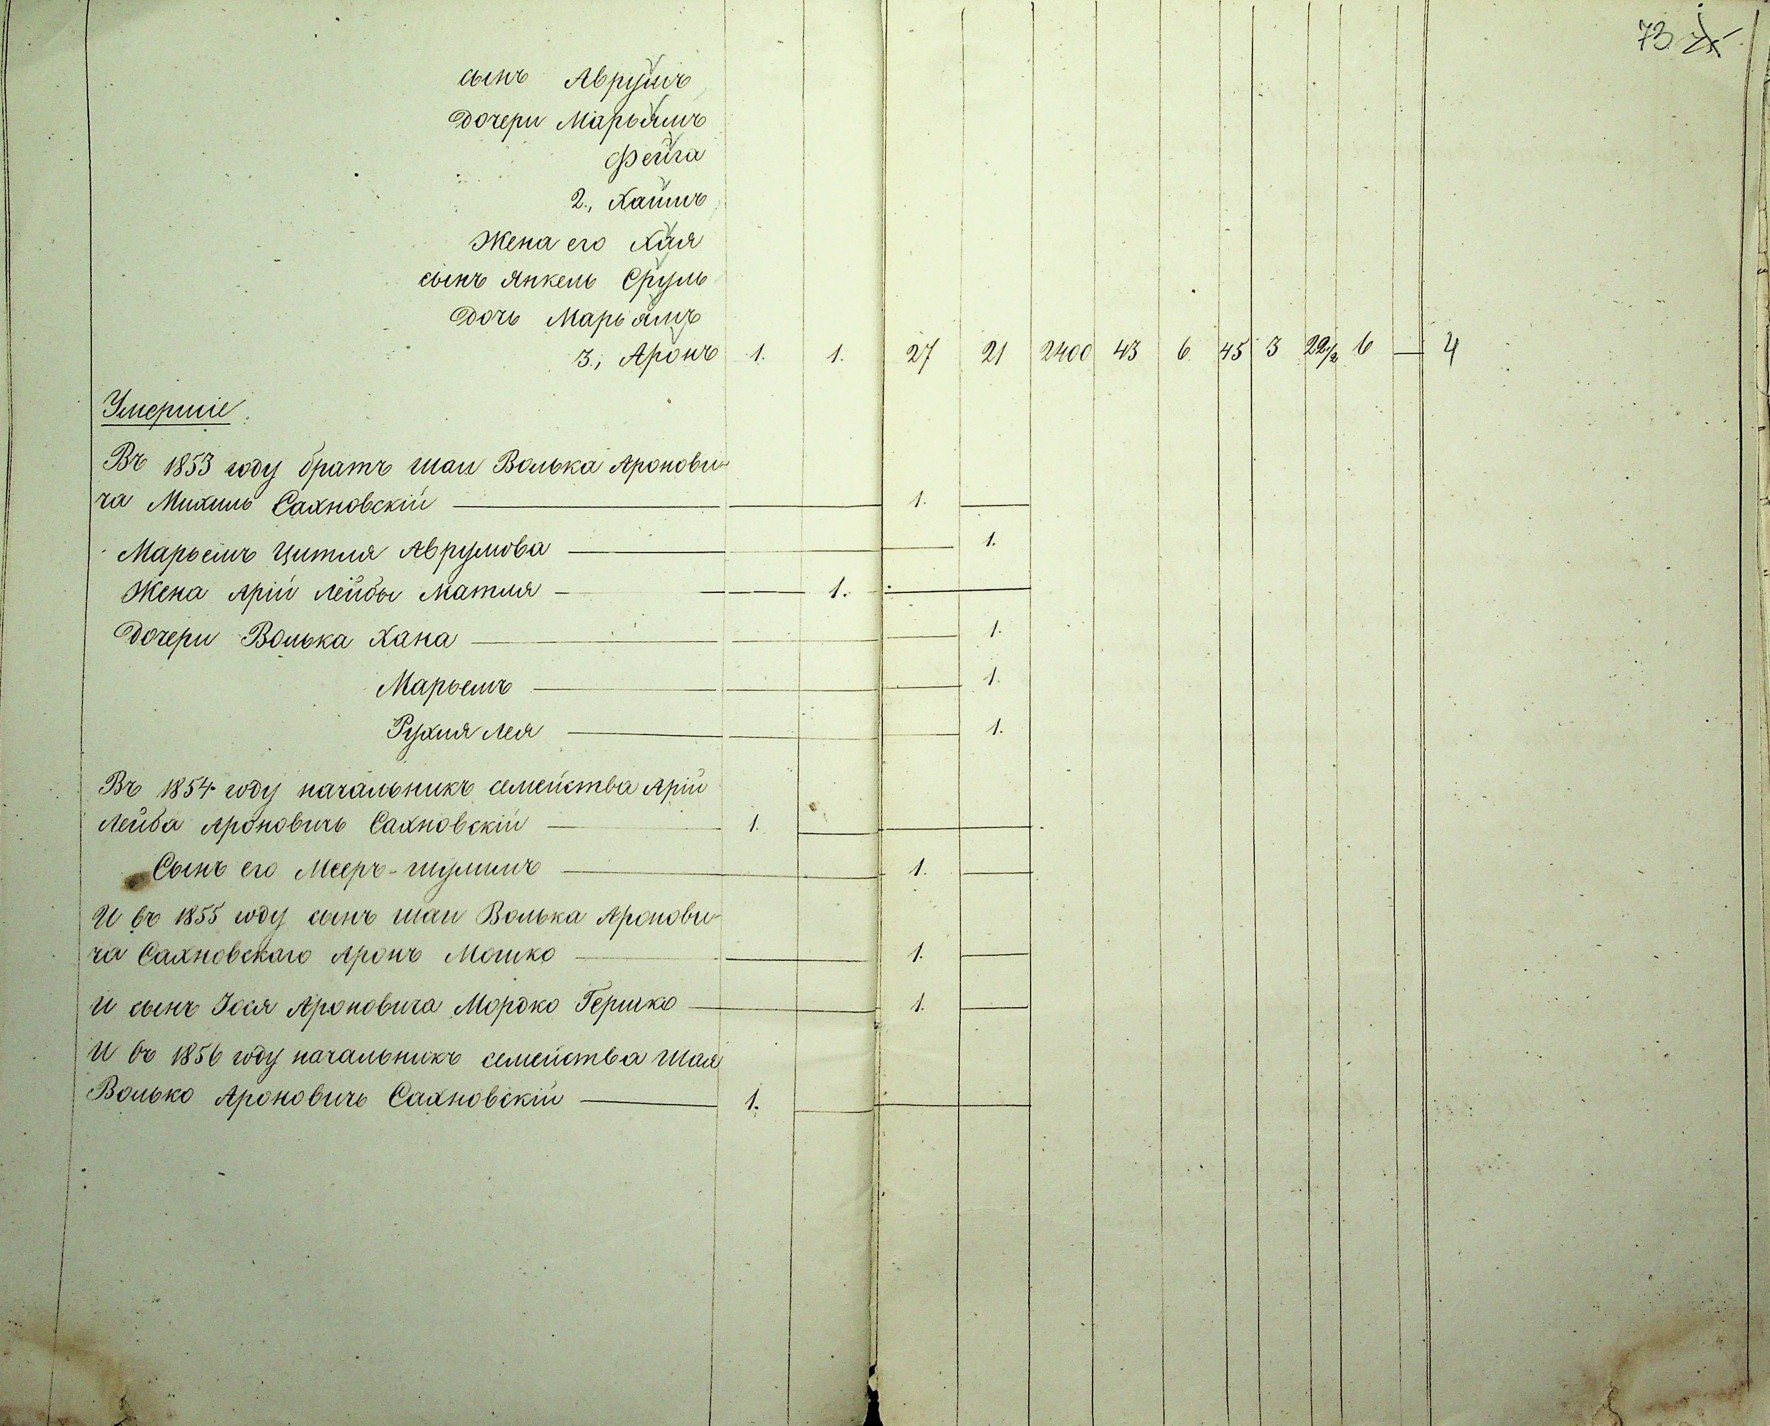 73
сынъ Аврумъ
Дочери Марьямъ
Фейга
2., Хаимъ
Жена его Хая
сынъ Янкель Сруль
Дочь Марьямъ
3., Аронъ 1. 1. 27 21 2400 43 6 45 3 22 1/2 6 — 4
Умершіе.
Въ 1853 году братъ Шаи Волька Аронови-
ча Михиль Сахновскій — 1. —
Марьемъ Цитля Аврумова — 1.
Жена Арій Лейбы Матля — 1. —
Дочери Волька Хана — 1.
Марьемъ — 1.
Рухля Лея — 1.
Въ 1854 году начальникъ семейства Арій
Лейба Ароновичь Сахновскій — 1. —
Сынъ его Мееръ-Шулимъ — 1. —
И въ 1855 году сынъ Шаи Волька Аронови-
ча Сахновскаго Аронъ Мошко — 1. —
И сынъ Іося Ароновича Мордко Гершко — 1. —
И въ 1856 году начальникъ семейства Шая
Волько Ароновичь Сахновскій — 1. —